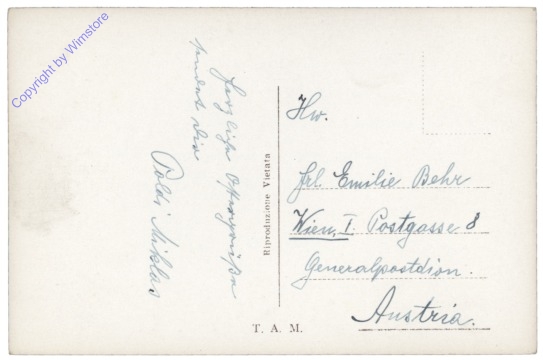 Copyright by Wimstore
Herzliche Ostergrüße
sendet die
Poldi Miklas
Riproduzione Vietata
T. A. M.
Hw.
Frl. Emilie Behr
Wien, I. Postgasse 8
Generalpostdion.
Austria.